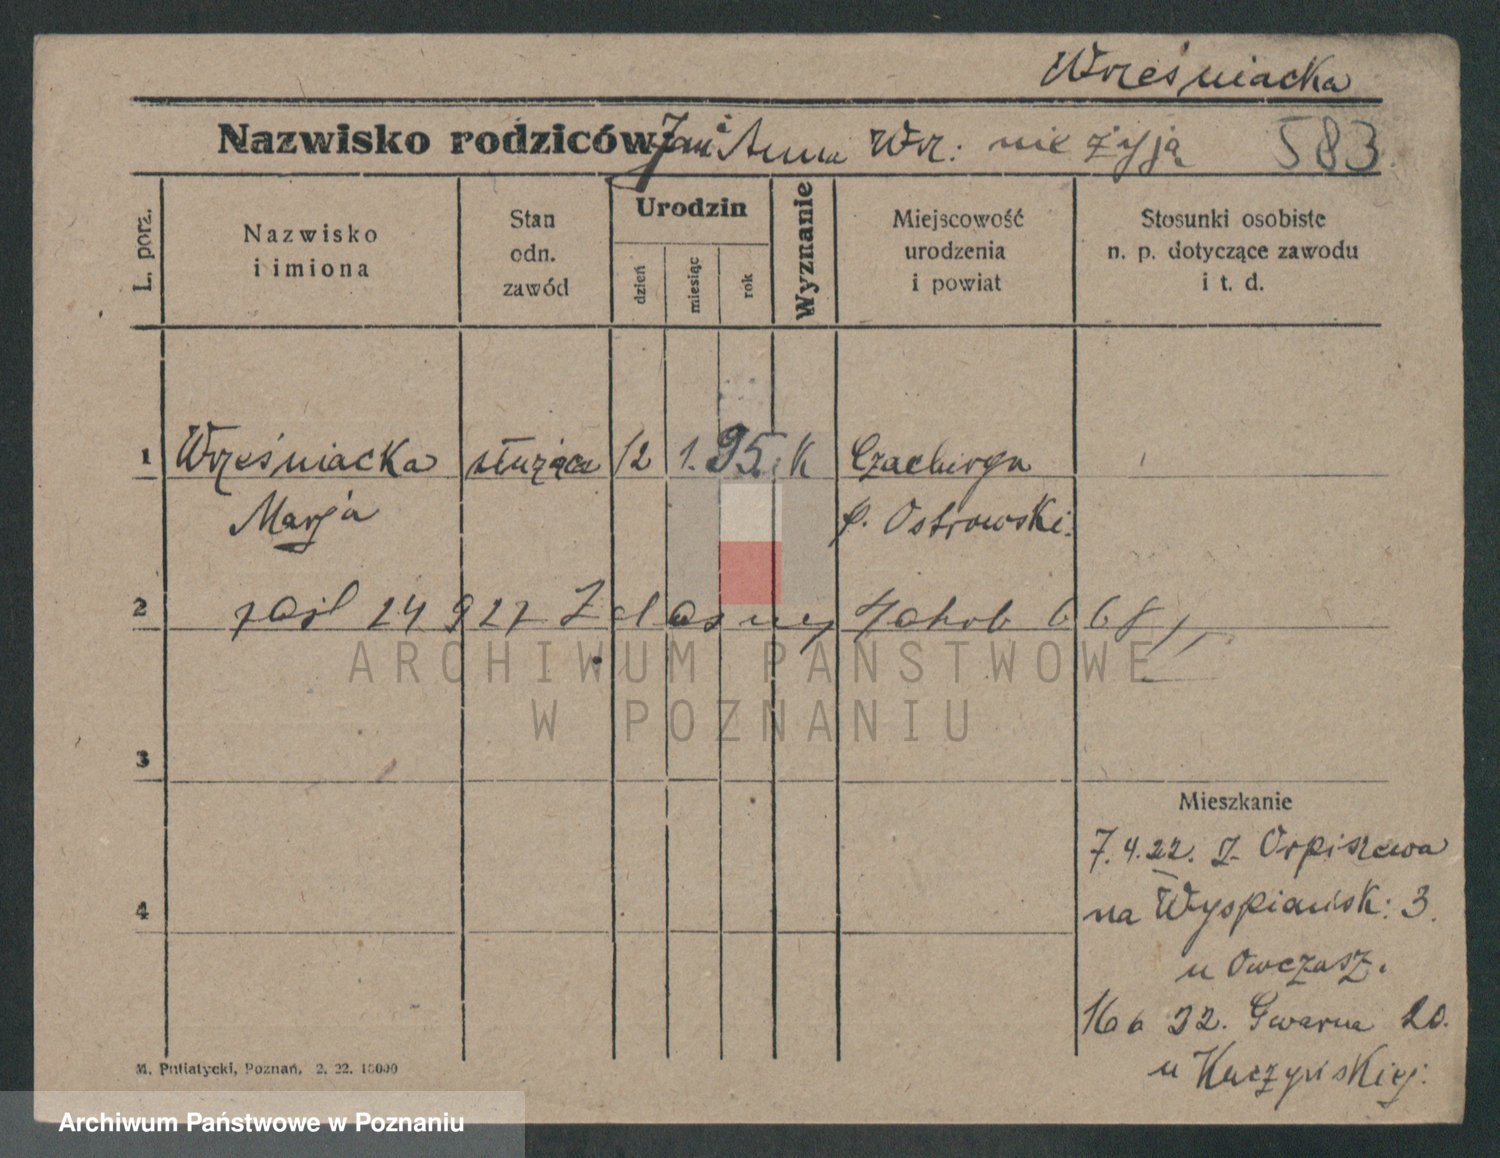 Wrześniacka
Nazwisko rodziców: Jan i Anna Wrz: nie żyją 583.
L. porz.
Nazwisko i imiona
Stan odn. zawód
Urodzin
dzień
miesiąc
rok
Wyznanie
Miejscowość urodzenia i powiat
Stosunki osobiste n. p. dotyczące zawodu i t. d.
1 Wrześniacka służąca 12 1. 95. K
Marja p. Ostrowski.
2 24 9 27 Jakob
ARCHIWUM PAŃSTWOWE
W POZNANIU
3
Mieszkanie
7.4.22. z Orpiszewa
4
na Wyspiańsk: 3.
u Owczasz.
16 6 22. Gwarna 20.
u Kuczyńskiej.
M. Putiatycki, Poznań, 2. 22. 10000
Archiwum Państwowe w Poznaniu